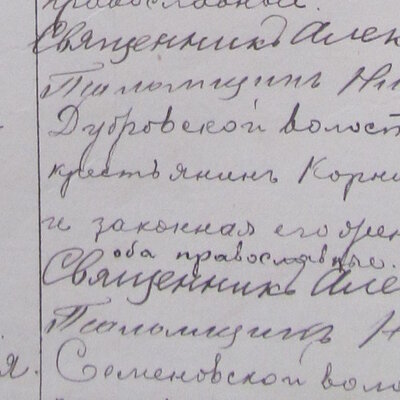 православный.
Священникъ Алек
Псаломщикъ Ни
Дубровской волост
крестьянинъ Корни
и законная его жен
оба православные.
Священникъ Але
Псаломщикъ Н
я. Семеновской воло